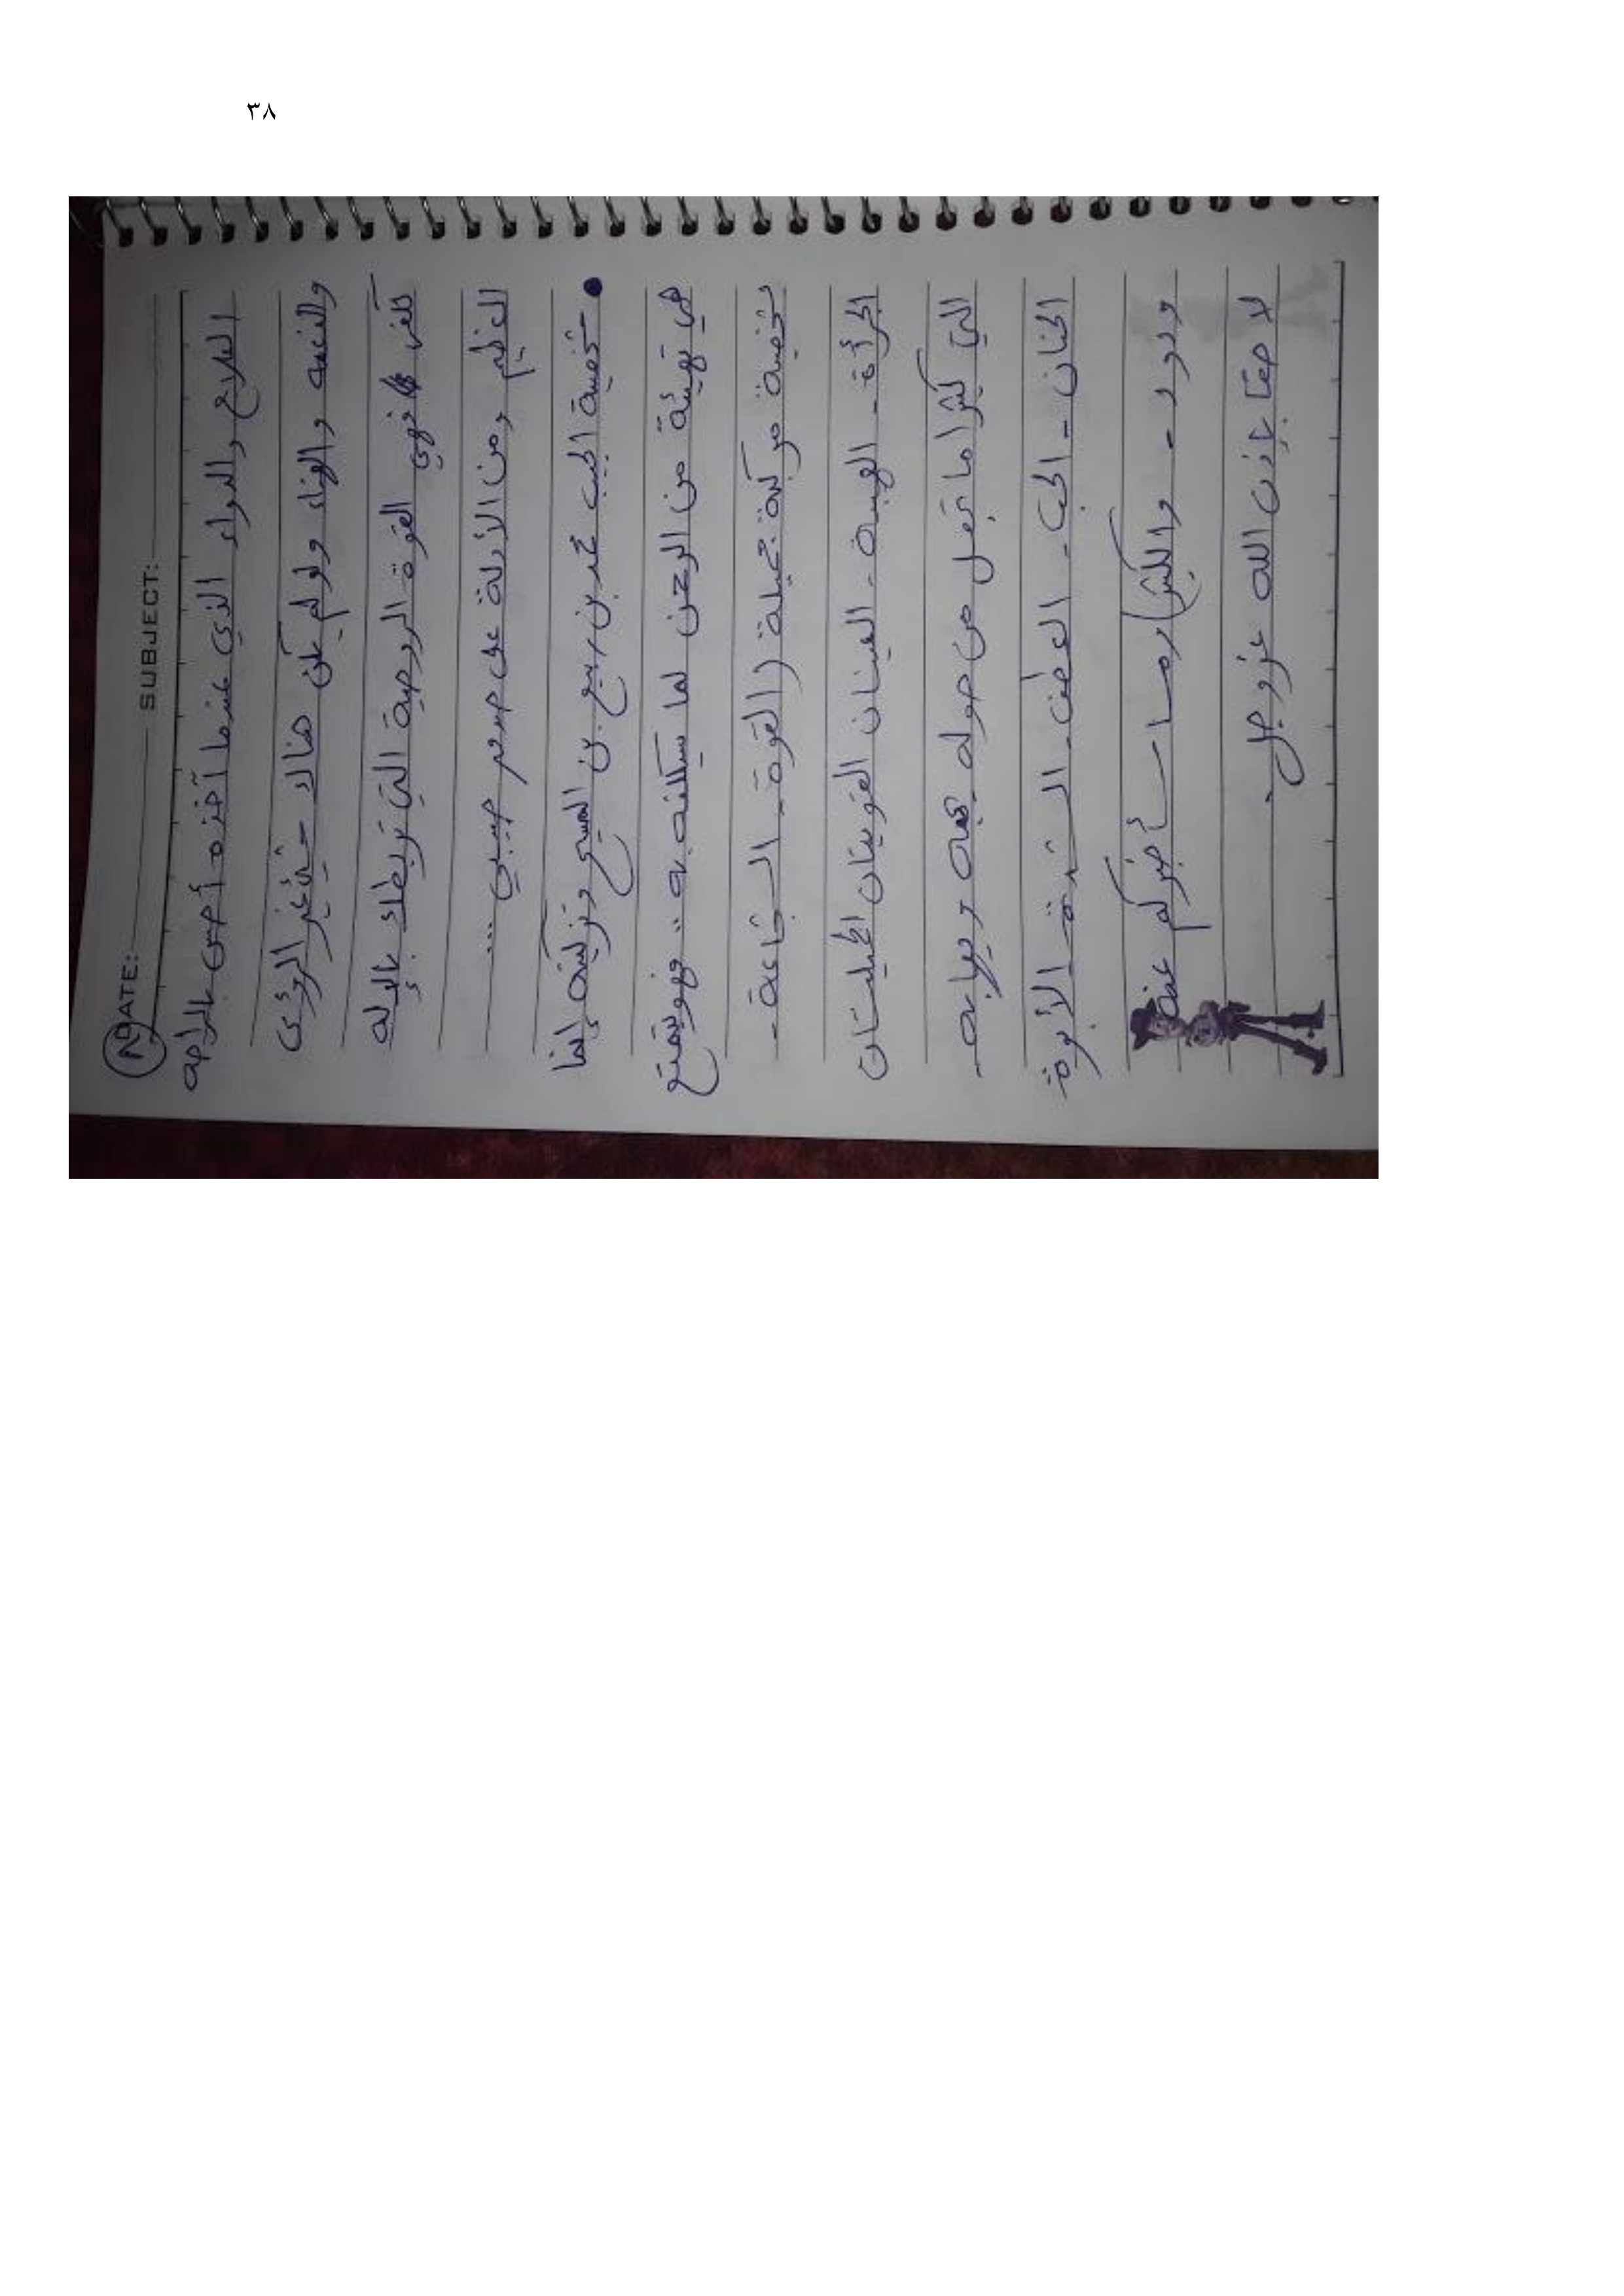 ٣٨
DATE: SUBJECT:
العلاج والدواء الذي عندما آخذه أحس بالراحه
والنعمه والهناء ولو لم يكن هناك شئ غير الرؤى
لكفى فهي القوة الروحية التي تربطك بالإله
العظيم ومن الأدلة على صدق حبيبي ...
شخصية الحبيب محمد بن ربيع بن المسيح وتزكيته إنما
هي تهيئة من الرحمن لما سيكلفه به .. فهو يتمتع
بشخصية مركبة جميلة (القوة - الشجاعة -
الجرأة - الهيبة - العينان القويتان الجميلتان
التي كثيرا ما تجعل من حوله يحبه ويهابه -
الحنان - الحب - العطف - الشدة - الأبوة
ودود - والكثير) وما سأخبركم عنه
لاحقا بإذن الله عز وجل -